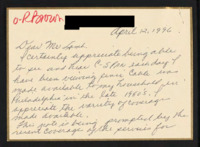 O.R. Brown
April 12, 1996
Dear Mr. Lamb
I certainly appreciate being able
to see and hear C-Span each day. I
have been viewing since Cable was
made available to my household, in
Philadelphia in the late 1980's. I
appreciate the variety of coverage
made available.
This note is being prompted by the
recent coverage of the services for